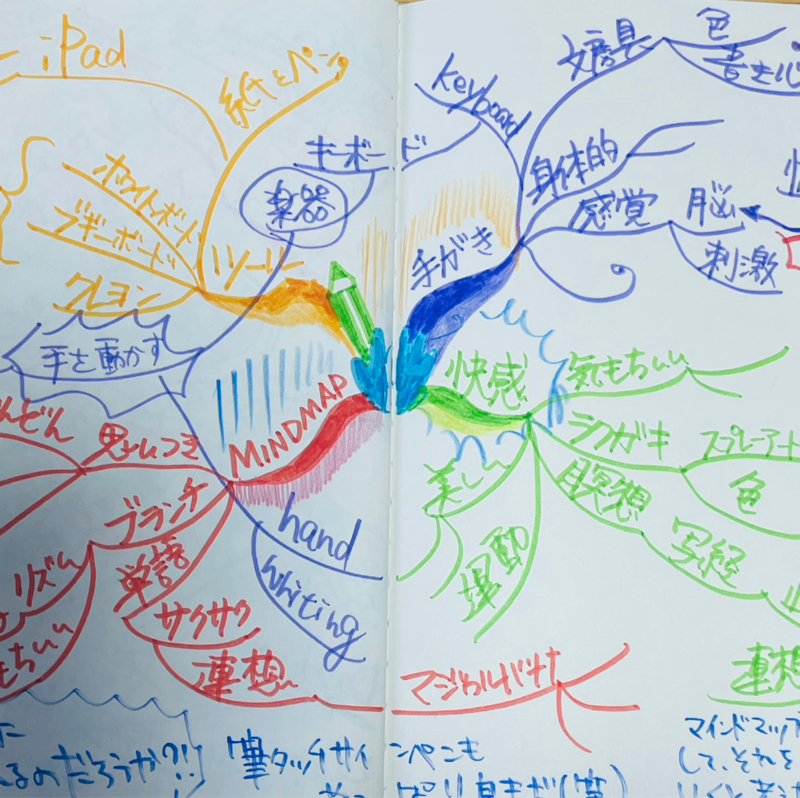 iPad
紙とペン
ホワイトボード
ブギーボード
クレヨン
ツール
キーボード
楽器
手を動かす
MINDMAP
思いつき
ブランチ
単語
リズム
サクサク
連想
hand
whiting
マジカルバナナ
Keyboard
文房具
色
身体的
感覚
脳
刺激
手がき
快感
気もちいい
ラクガキ
スプレーアート
色
瞑想
写経
美しい
運動
連想
るのだろうか?!
筆タッチサインペンも
やっぱり良きだ(笑)
マインドマップ
して、それを